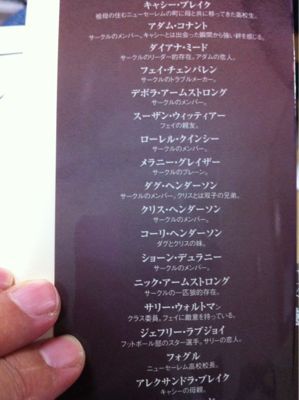 キャシー・ブレイク
祖母の住むニューセーレムの町に母と共に移ってきた高校生。
アダム・コナント
サークルのメンバー。キャシーとは出会った瞬間から強い絆を感じる。
ダイアナ・ミード
サークルのリーダー的存在。アダムの恋人。
フェイ・チェンバレン
サークルのトラブルメーカー。
デボラ・アームストロング
サークルのメンバー。
スーザン・ウィッティアー
フェイの親友。
ローレル・クインシー
サークルのメンバー。
メラニー・グレイザー
サークルのブレーン。
ダグ・ヘンダーソン
サークルのメンバー。クリスとは双子の兄弟。
クリス・ヘンダーソン
サークルのメンバー。
コーリ・ヘンダーソン
ダグとクリスの妹。
ショーン・デュラニー
サークルのメンバー。
ニック・アームストロング
サークルの一匹狼的存在。
サリー・ウォルトマン
クラス委員。フェイに敵意を持っている。
ジェフリー・ラブジョイ
フットボール部のスター選手。サリーの恋人。
フォグル
ニューセーレム高校校長。
アレクサンドラ・ブレイク
キャシーの母親。